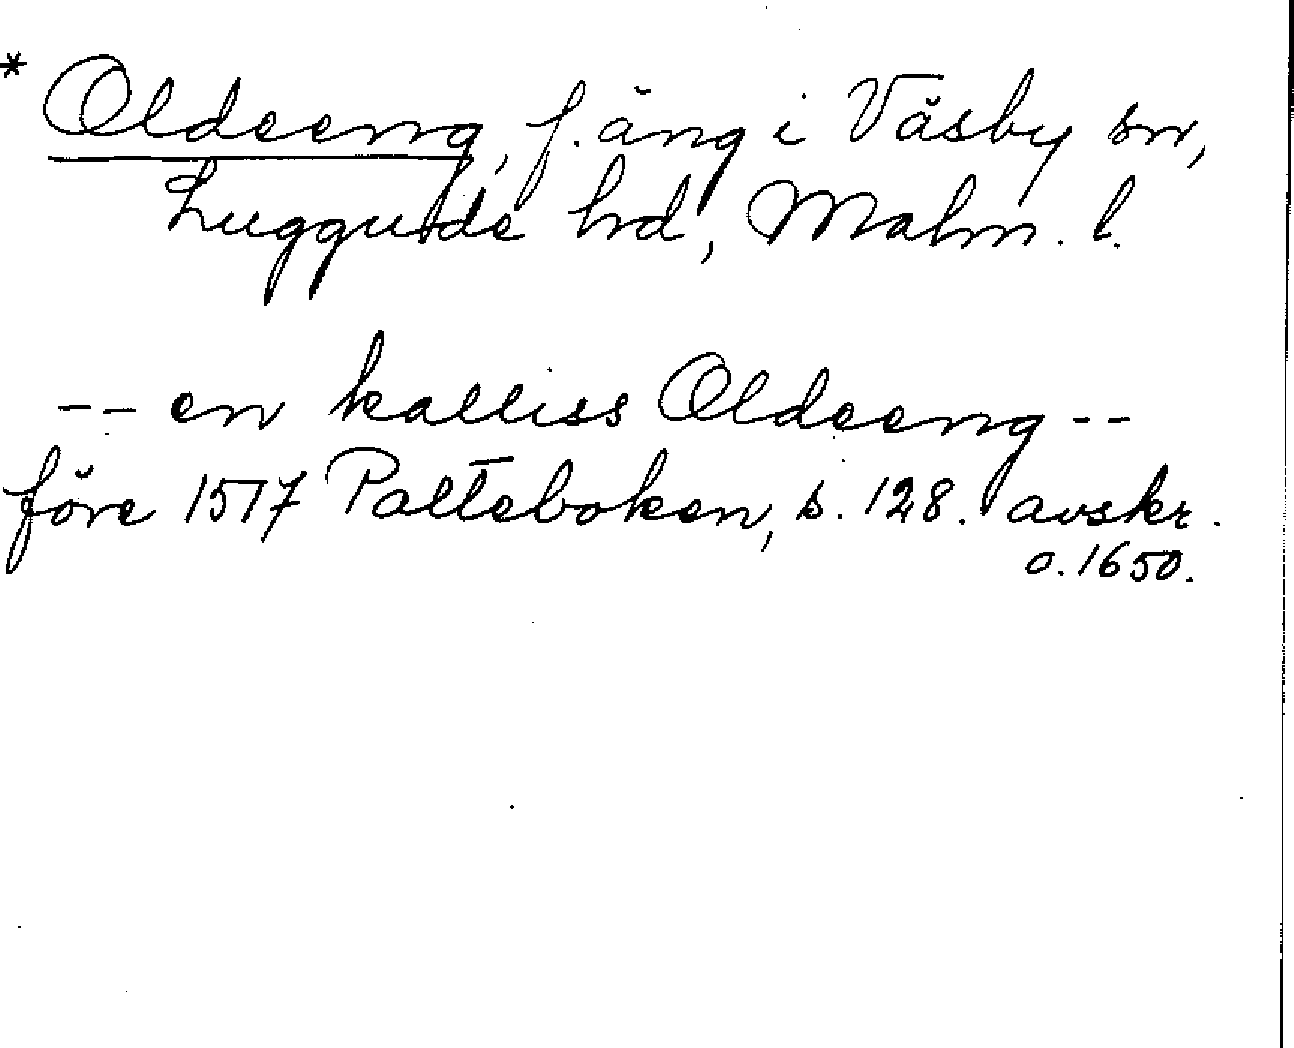 * Oldeeng, f. äng i Väsby sn,
Luggude hd, Malm. l.
-- en kalliss Oldeeng --
före 1517 Palteboken, s. 128. avskr.
o. 1650.